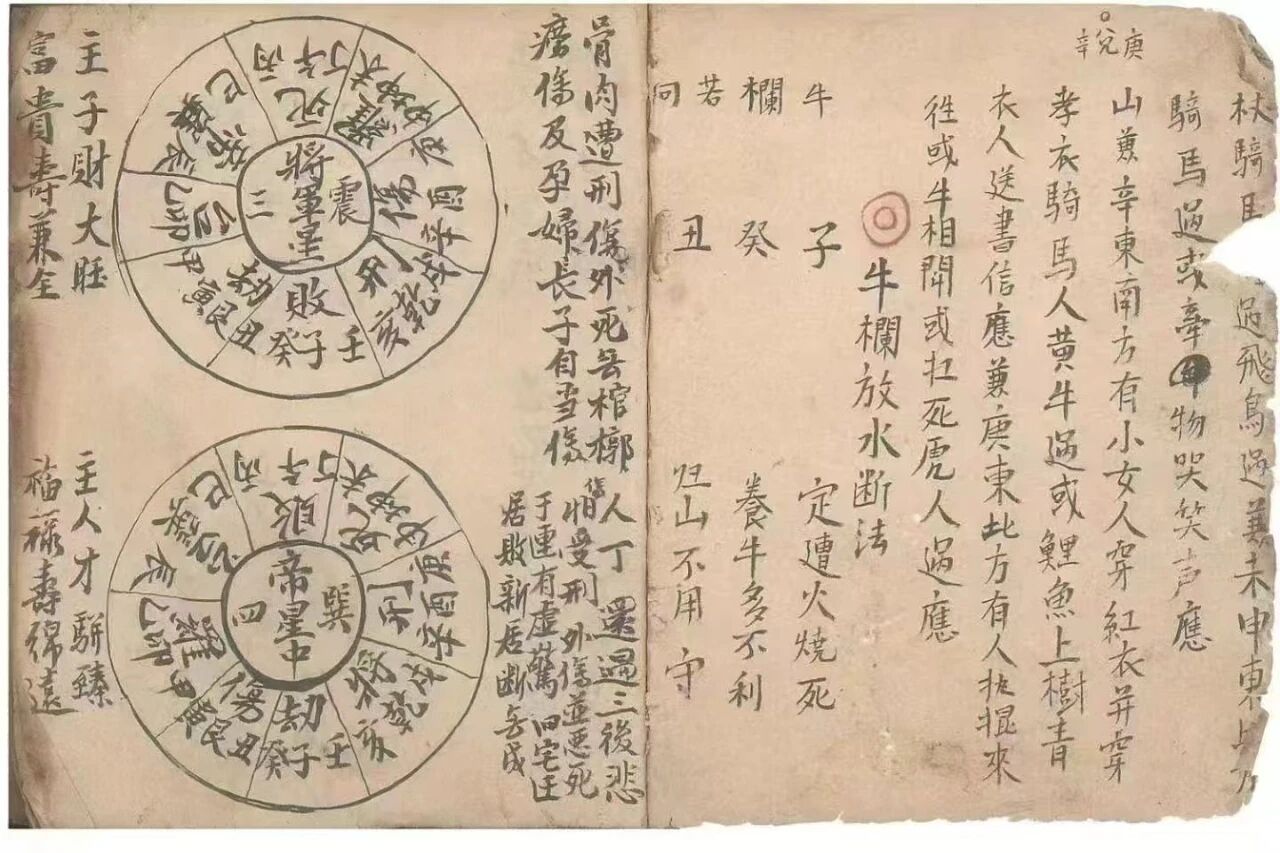 庚兌辛
杖騎馬過飛鳥過兼未申東上方
騎馬過或牽牛物哭笑声應
山兼辛東南方有小女人穿紅衣并穿
孝衣騎馬人黄牛過或鯉魚上樹青
衣人送書信應兼庚東北方有人扯棍來
徃或牛相鬥或扛死虎人過應
◎牛欄放水断法
牛欄若向
子 定遭火燒死
癸 養牛多不利
丑 山不用守
骨肉遭刑傷外死無棺槨
瘧傷及孕婦長子自当傷
人丁還過三後悲
怕受刑外傷並惡死
于連有虛驚旧宅住
居敗新居断無成
將軍星
震
三
死
丙午丁
庚酉辛
戌乾亥
敗
壬子癸
丑艮寅
劫
甲卯乙
辰巽巳
刑
傷
主子財大旺
富貴壽兼全
帝星中
巽
四
丙午丁
庚酉辛
戌乾亥
劫
壬子癸
丑艮寅
傷
甲卯乙
辰巽巳
刑
主人才駢臻
福祿壽綿遠